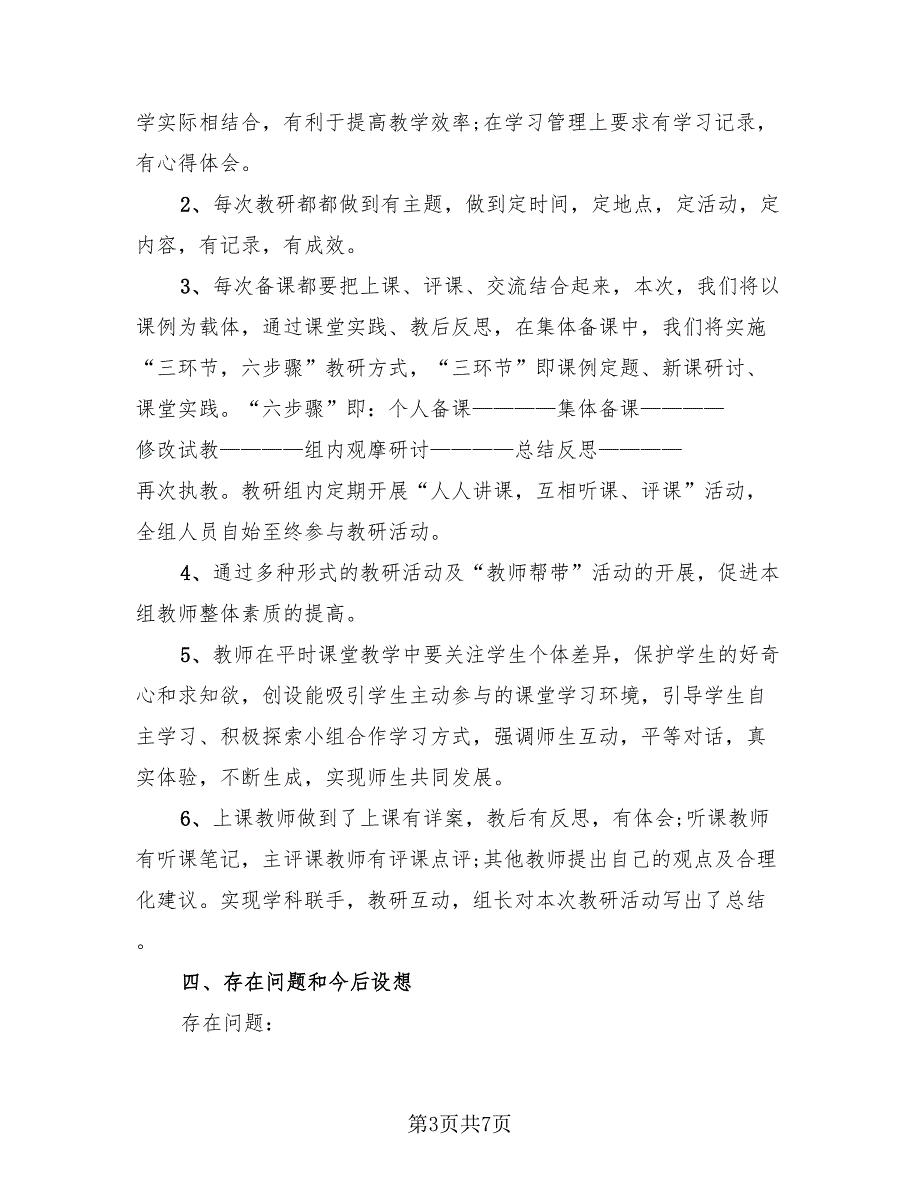 学实际相结合，有利于提高教学效率;在学习管理上要求有学习记录，
有心得体会。
2、每次教研都都做到有主题，做到定时间，定地点，定活动，定
内容，有记录，有成效。
3、每次备课都要把上课、评课、交流结合起来，本次，我们将以
课例为载体，通过课堂实践、教后反思，在集体备课中，我们将实施
“三环节，六步骤”教研方式，“三环节”即课例定题、新课研讨、
课堂实践。“六步骤”即：个人备课————集体备课————
修改试教————组内观摩研讨————总结反思————
再次执教。教研组内定期开展“人人讲课，互相听课、评课”活动，
全组人员自始至终参与教研活动。
4、通过多种形式的教研活动及“教师帮带”活动的开展，促进本
组教师整体素质的提高。
5、教师在平时课堂教学中要关注学生个体差异，保护学生的好奇
心和求知欲，创设能吸引学生主动参与的课堂学习环境，引导学生自
主学习、积极探索小组合作学习方式，强调师生互动，平等对话，真
实体验，不断生成，实现师生共同发展。
6、上课教师做到了上课有详案，教后有反思，有体会;听课教师
有听课笔记，主评课教师有评课点评;其他教师提出自己的观点及合理
化建议。实现学科联手，教研互动，组长对本次教研活动写出了总结
。
四、存在问题和今后设想
存在问题：
第3页共7页